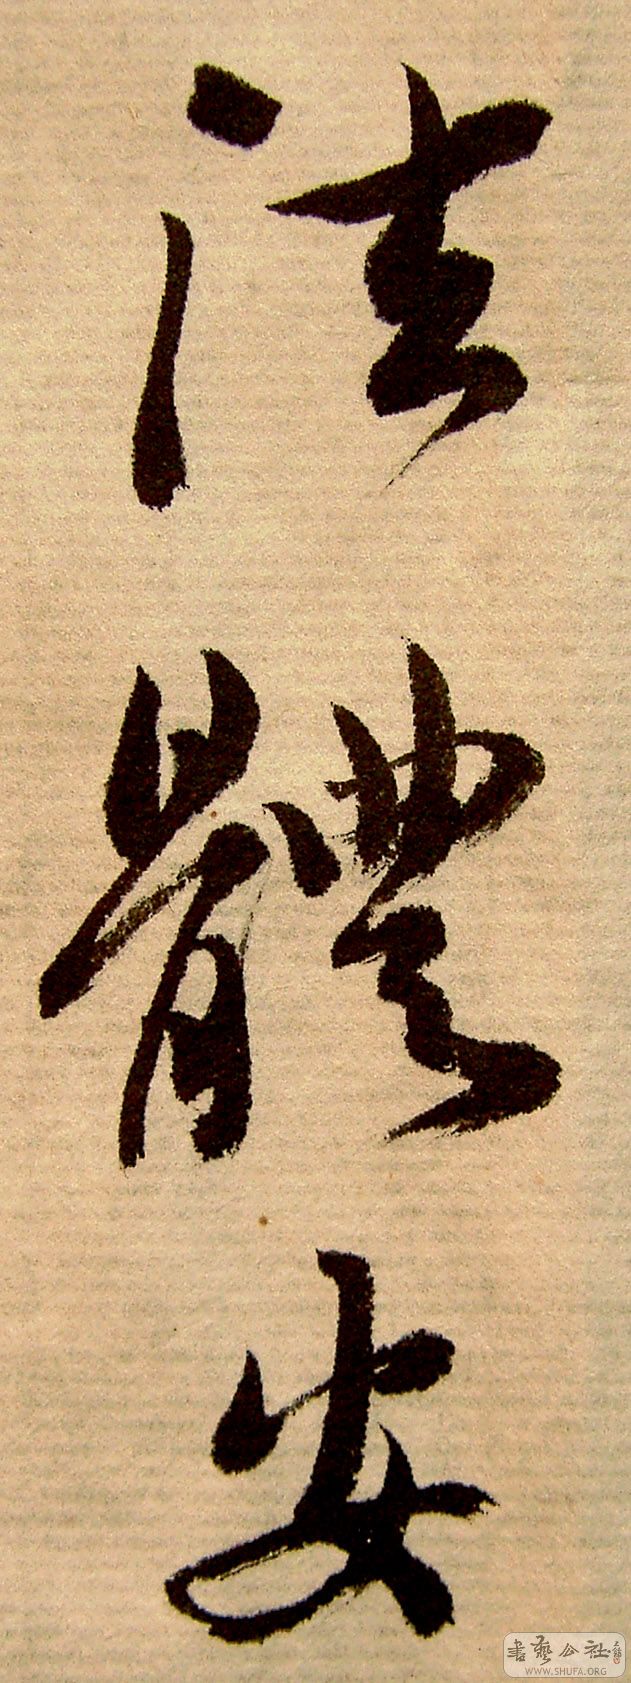 法體安
書藝公社
WWW.SHUFA.ORG